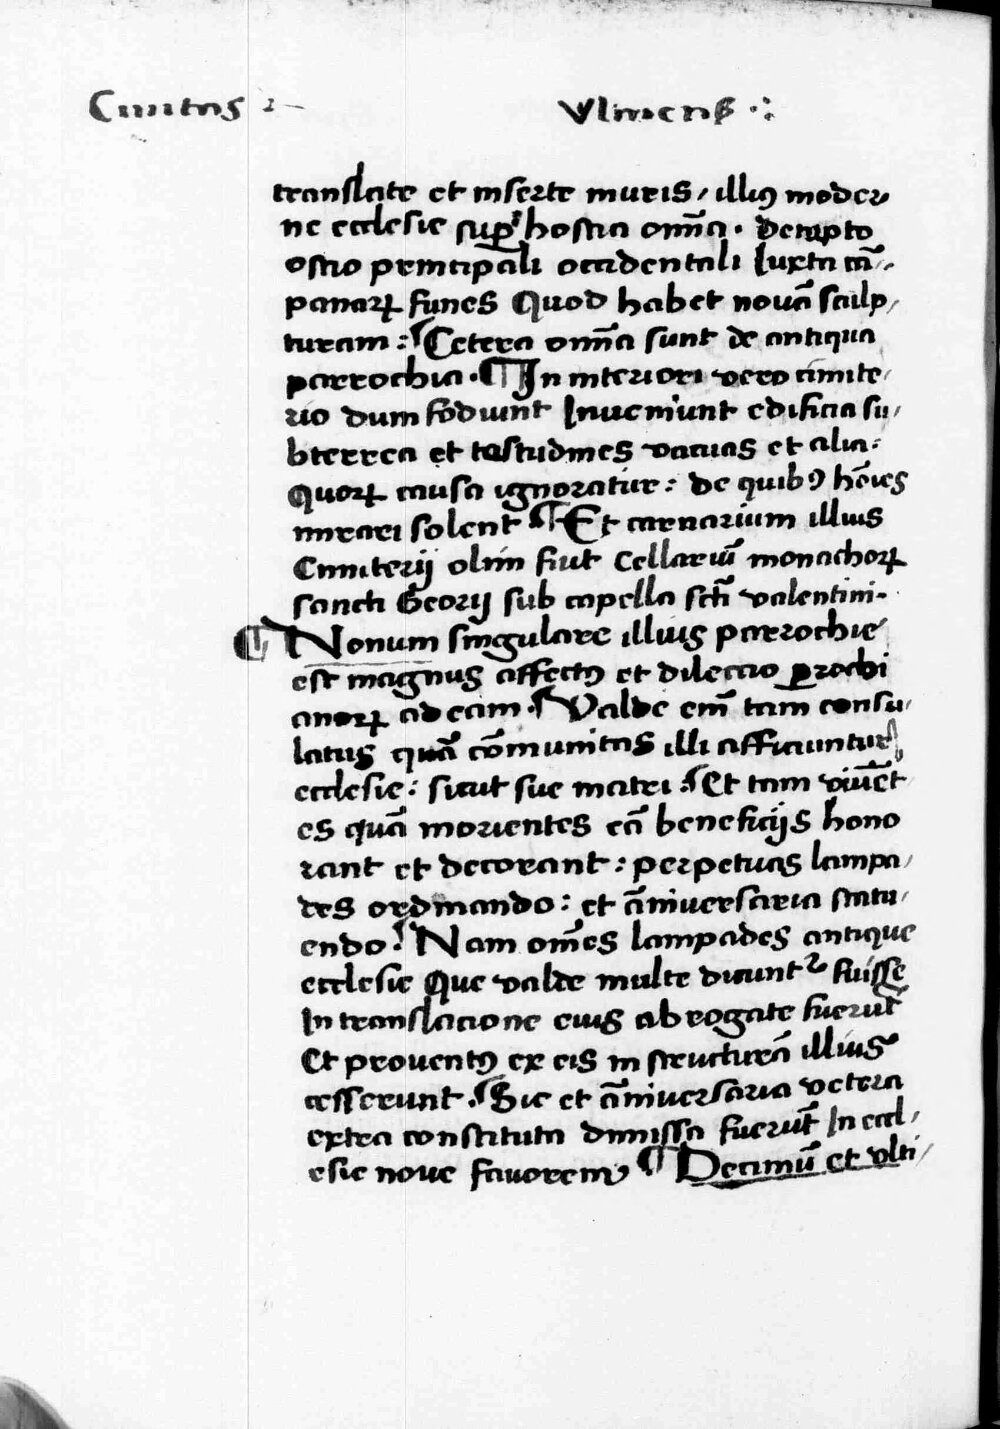 Ciuitas ⁊ Vlmens ·:
translate et inserte muris / illiꝰ moder
ne ecclesie sup̱ hostia om̄a · dempto
ostio principali occidentali Iuxta cā⸗
panaꝝ funes Quod habet nouā sculp/
turam : ¶ Cetera om̄ia sunt de antiqua
parrochia · ¶ In interiori vero cimite⸗
rio dum fodiunt Inueniunt edificia su/
bterrea et testudines vacuas et alia :
Quoꝝ causa ignoratur : de quibꝰ hoīes
mirari solent ¶ Et carnarium illius
Cimiterij olim fuit Cellariū monachoꝝ
sancti Georij sub capella sct̄i valentini ·
¶ Nonum singulare illius parrochie
est magnus affectꝰ et dilectio ꝑrochi
anoꝝ ad eam · ¶ Valde em̄ tam consu/
latus quā cōmunitas illi afficiuntur
ecclesie : sicut sue matri : ¶ Et tam viuēt
es quā morientes eā beneficijs hono
rant et decorant : perpetuas lampa/
des ordinando : et āniuersaria statu/
endo : ¶ Nam om̄es lampades antique
ecclesie Que valde multe dicunt᷑ fuisse
In translacione eius abrogate fuerūt
Et prouentꝰ ex eis in structurā illius
cesserunt · ¶ Sic et āniuersaria vetera
extra constituta dimissa fuerūt In eccl/
esie noue fauorem ¶ Decimū et vlti/